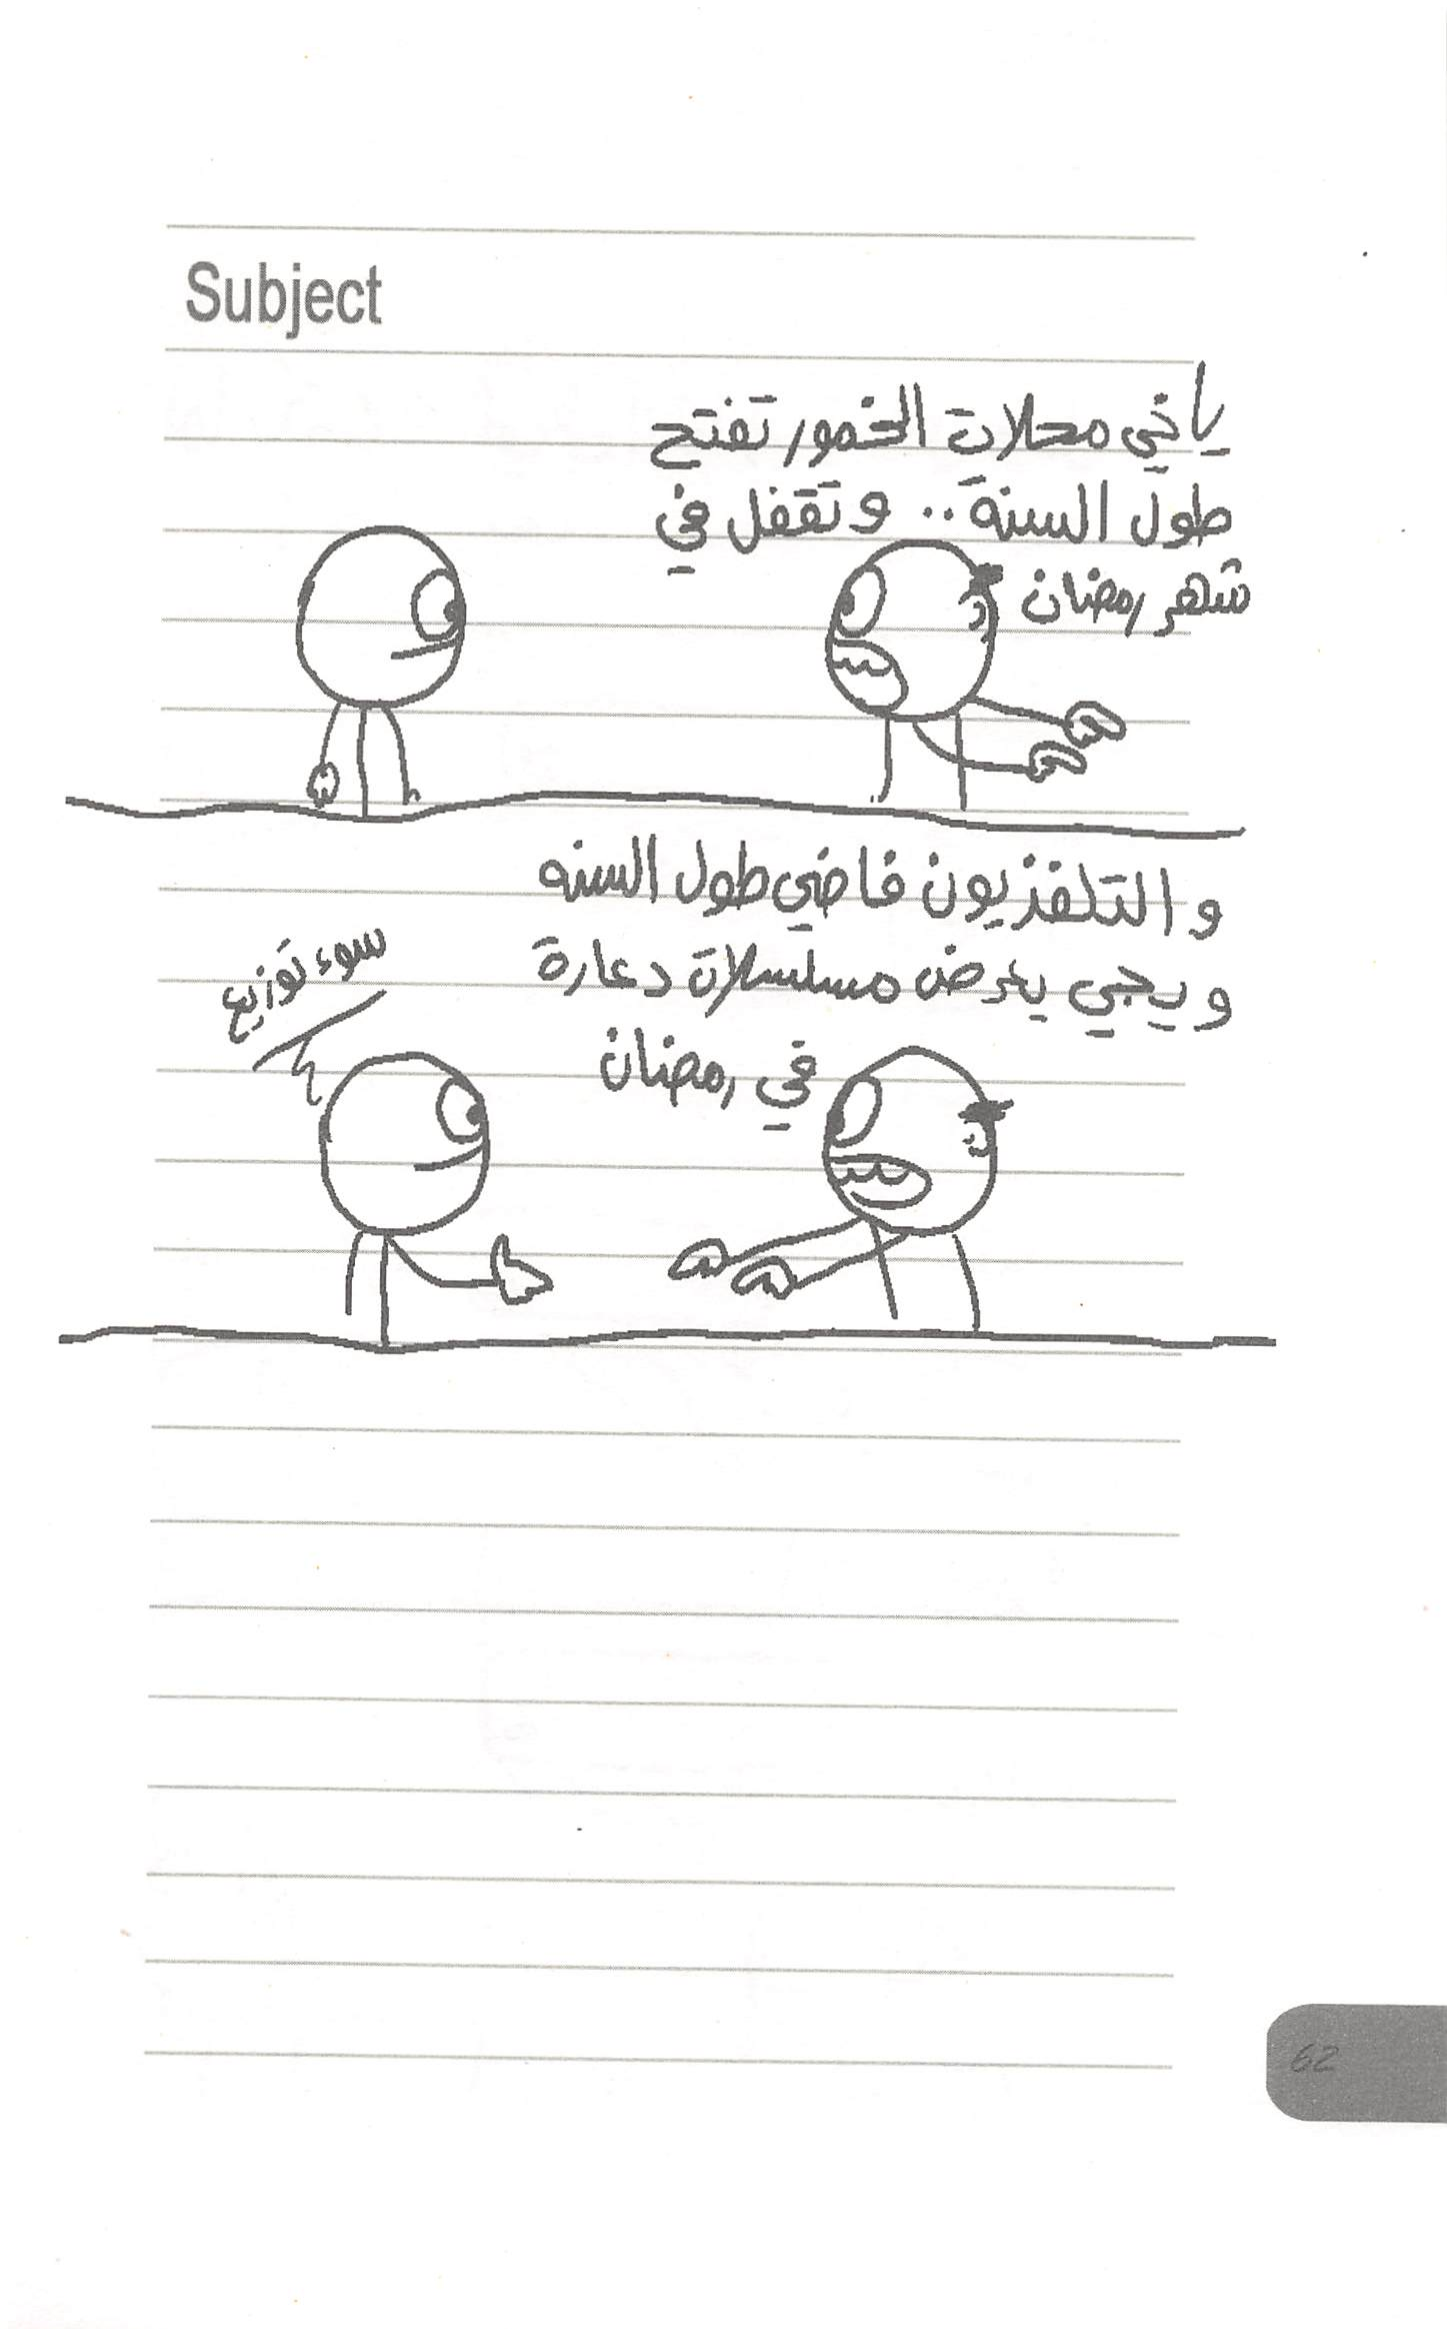 Subject
ياخي محلات الخمور تفتح
طول السنة .. وتقفل في
شهر رمضان
والتلفزيون فاضي طول السنه
ويجي يعرض مسلسلات دعارة
في رمضان
سوء توزيع
62